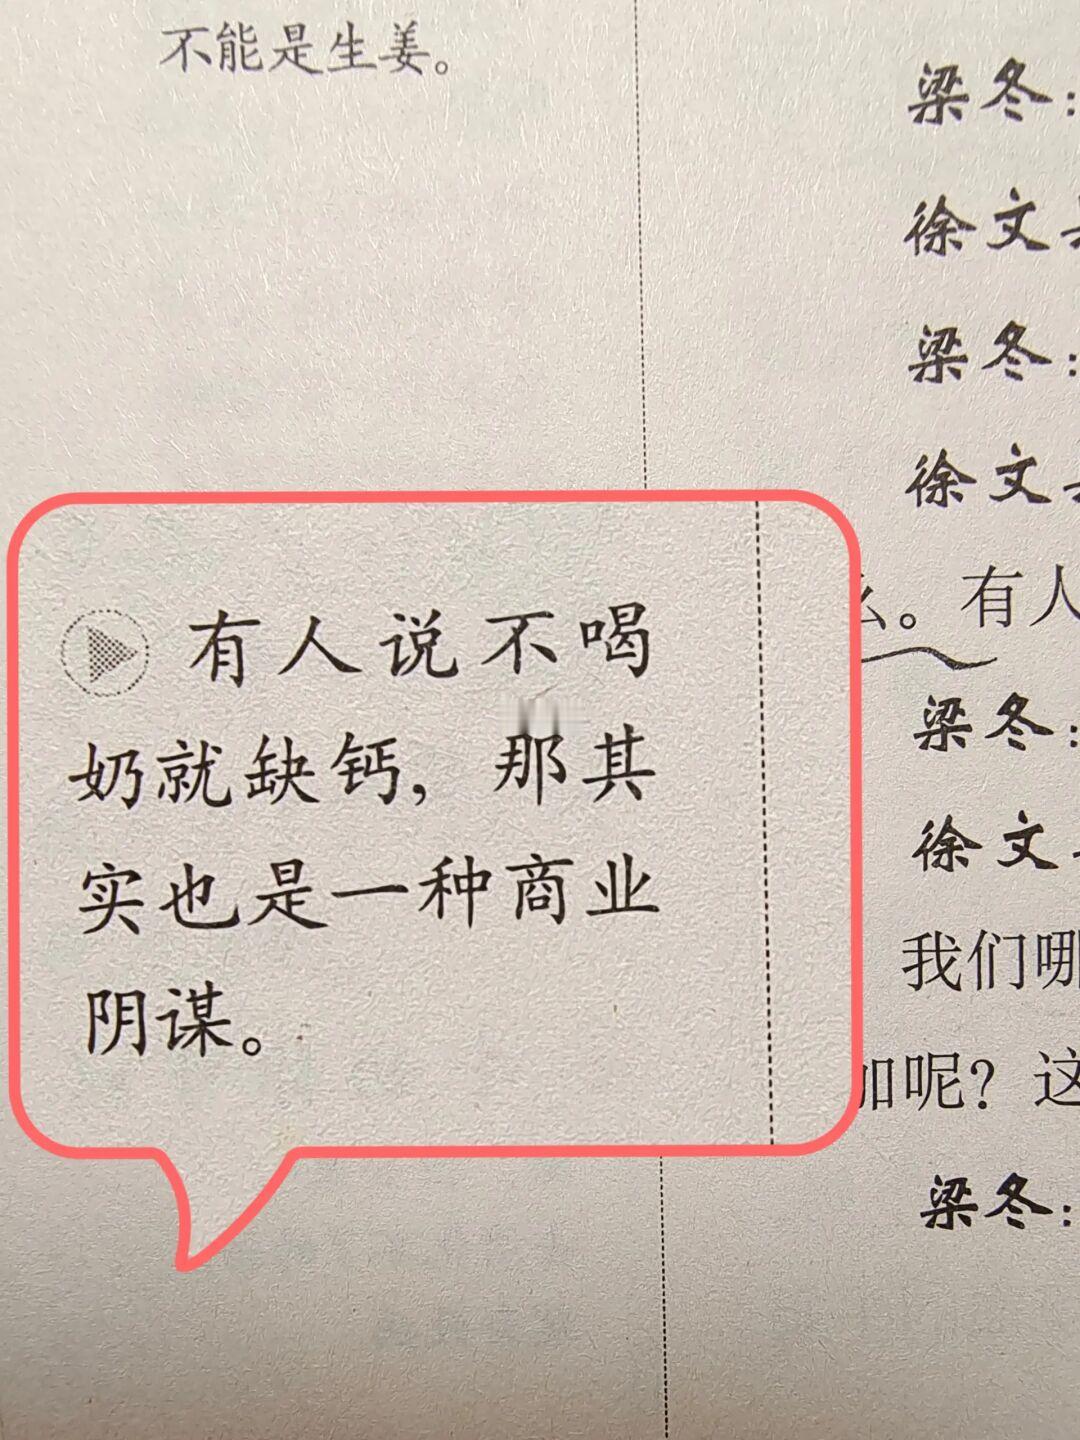 不能是生姜。
有人说不喝
奶就缺钙，那其
实也是一种商业
阴谋。
梁冬：
徐文
梁冬：
徐文
么。有人
梁冬：
徐文
我们哪
加呢？这
梁冬：